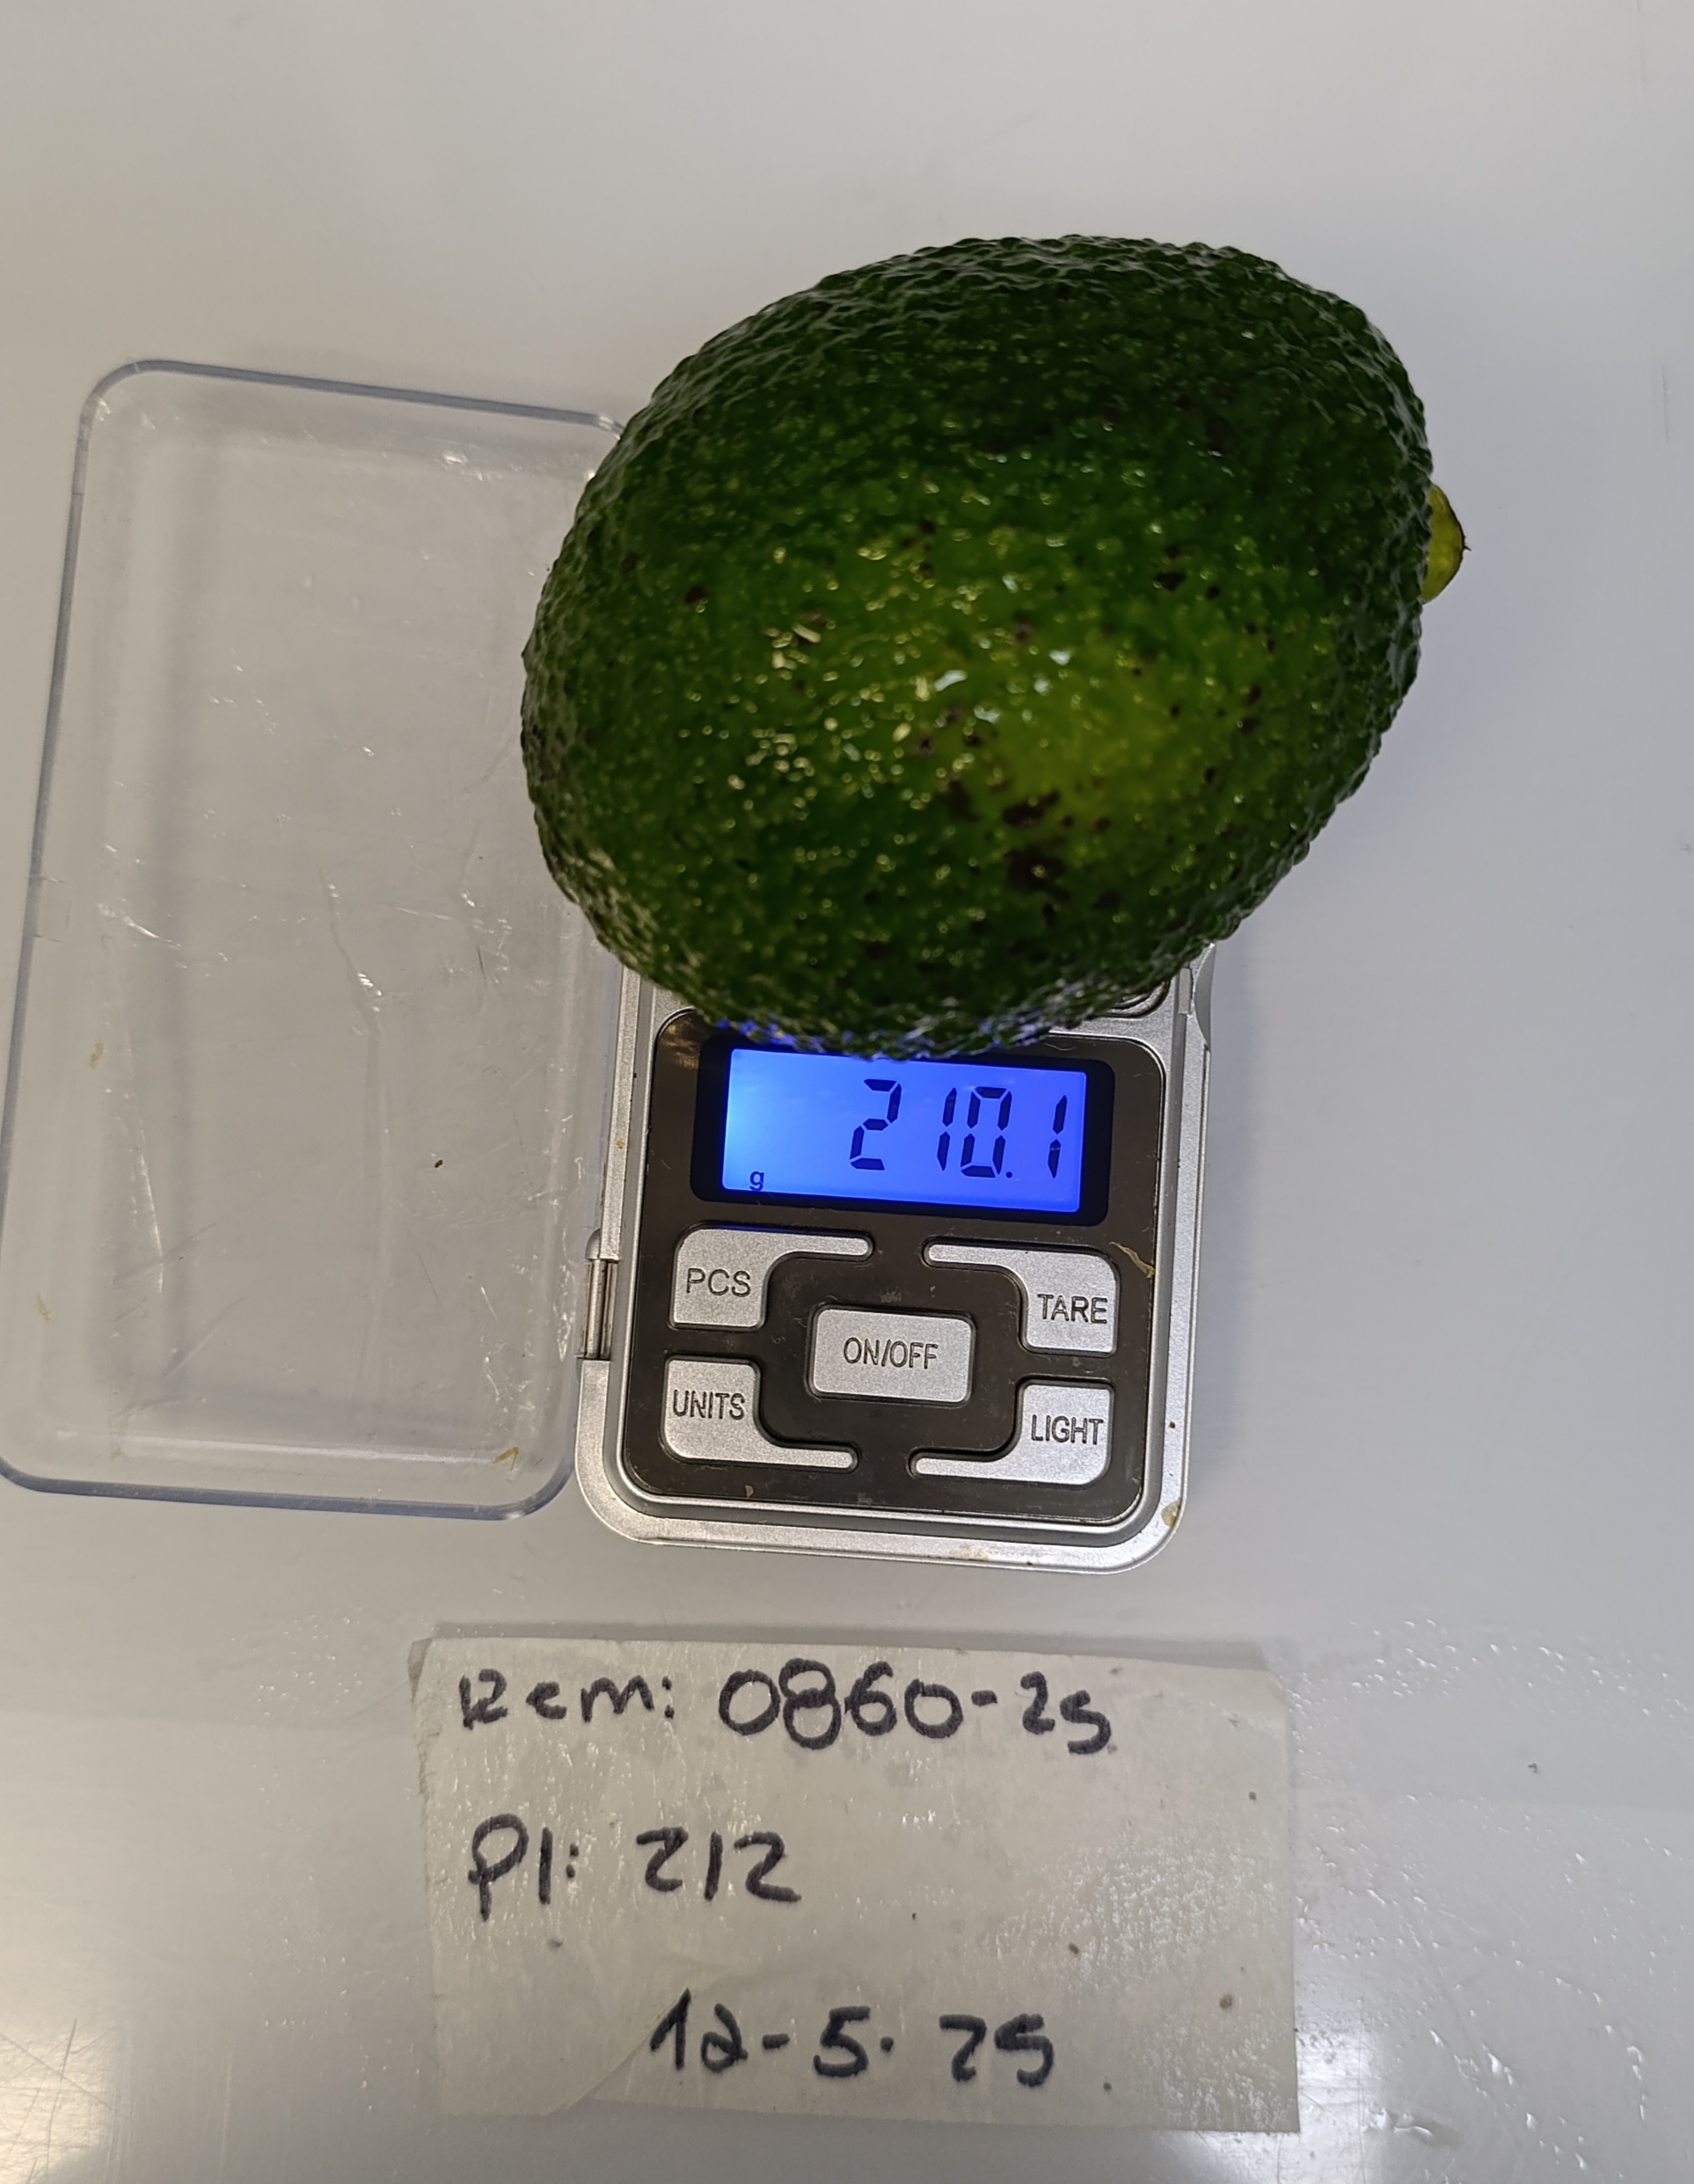 210.1
g
PCS
TARE
ON/OFF
UNITS
LIGHT
Rem: 0860-25
Pl: 212
12-5-25